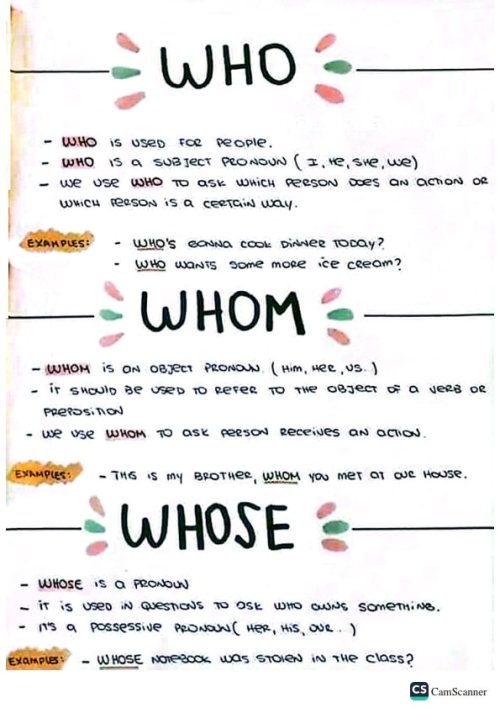 WHO
- WHO is used for people.
- WHO is a subject pronoun ( I, He, She, we)
- we use WHO to ask which person does an action or
which person is a certain way.
Examples: - WHO's gonna cook dinner today?
- WHO wants some more ice cream?
WHOM
- WHOM is an object pronoun. ( Him, Her, us..)
- it should be used to refer to the object of a verb or
preposition
- we use WHOM to ask person receives an action.
Examples: - This is my brother, WHOM you met at our house.
WHOSE
- WHOSE is a pronoun
- it is used in questions to ask who owns something.
- it's a possessive pronoun( Her, His, our...)
Examples: - WHOSE notebook was stolen in the class?
CS CamScanner